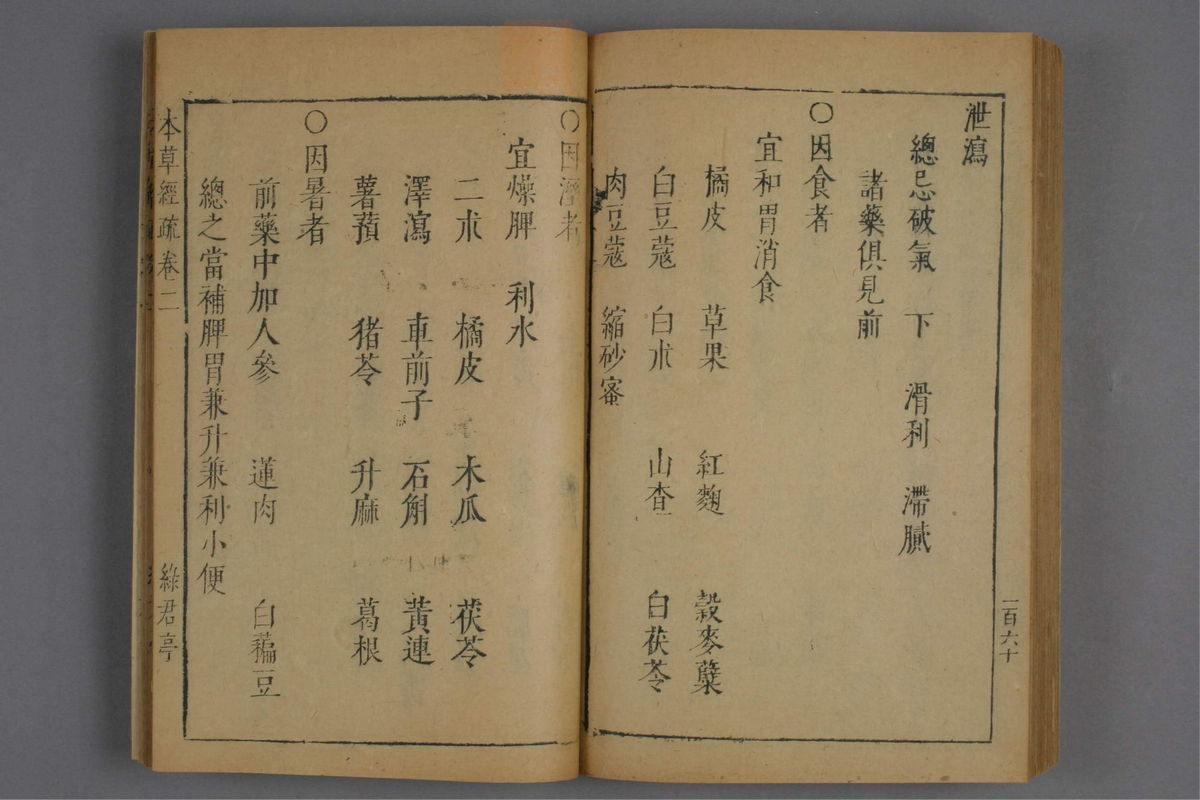 泄瀉
總忌破氣 下 滑利 滯膩
諸藥俱見前
○因食者
宜和胃消食
橘皮 草果 紅麴 穀麥蘗
白豆蔻 白朮 山查 白茯苓
肉豆蔻 縮砂蜜
一百六十
○因溼者
宜燥脾 利水
二朮 橘皮 木瓜 茯苓
澤瀉 車前子 石斛 黃連
薯蕷 猪苓 升麻 葛根
○因暑者
前藥中加人參 蓮肉 白藊豆
總之當補脾胃兼升兼利小便
本草經疏 卷二 綠君亭